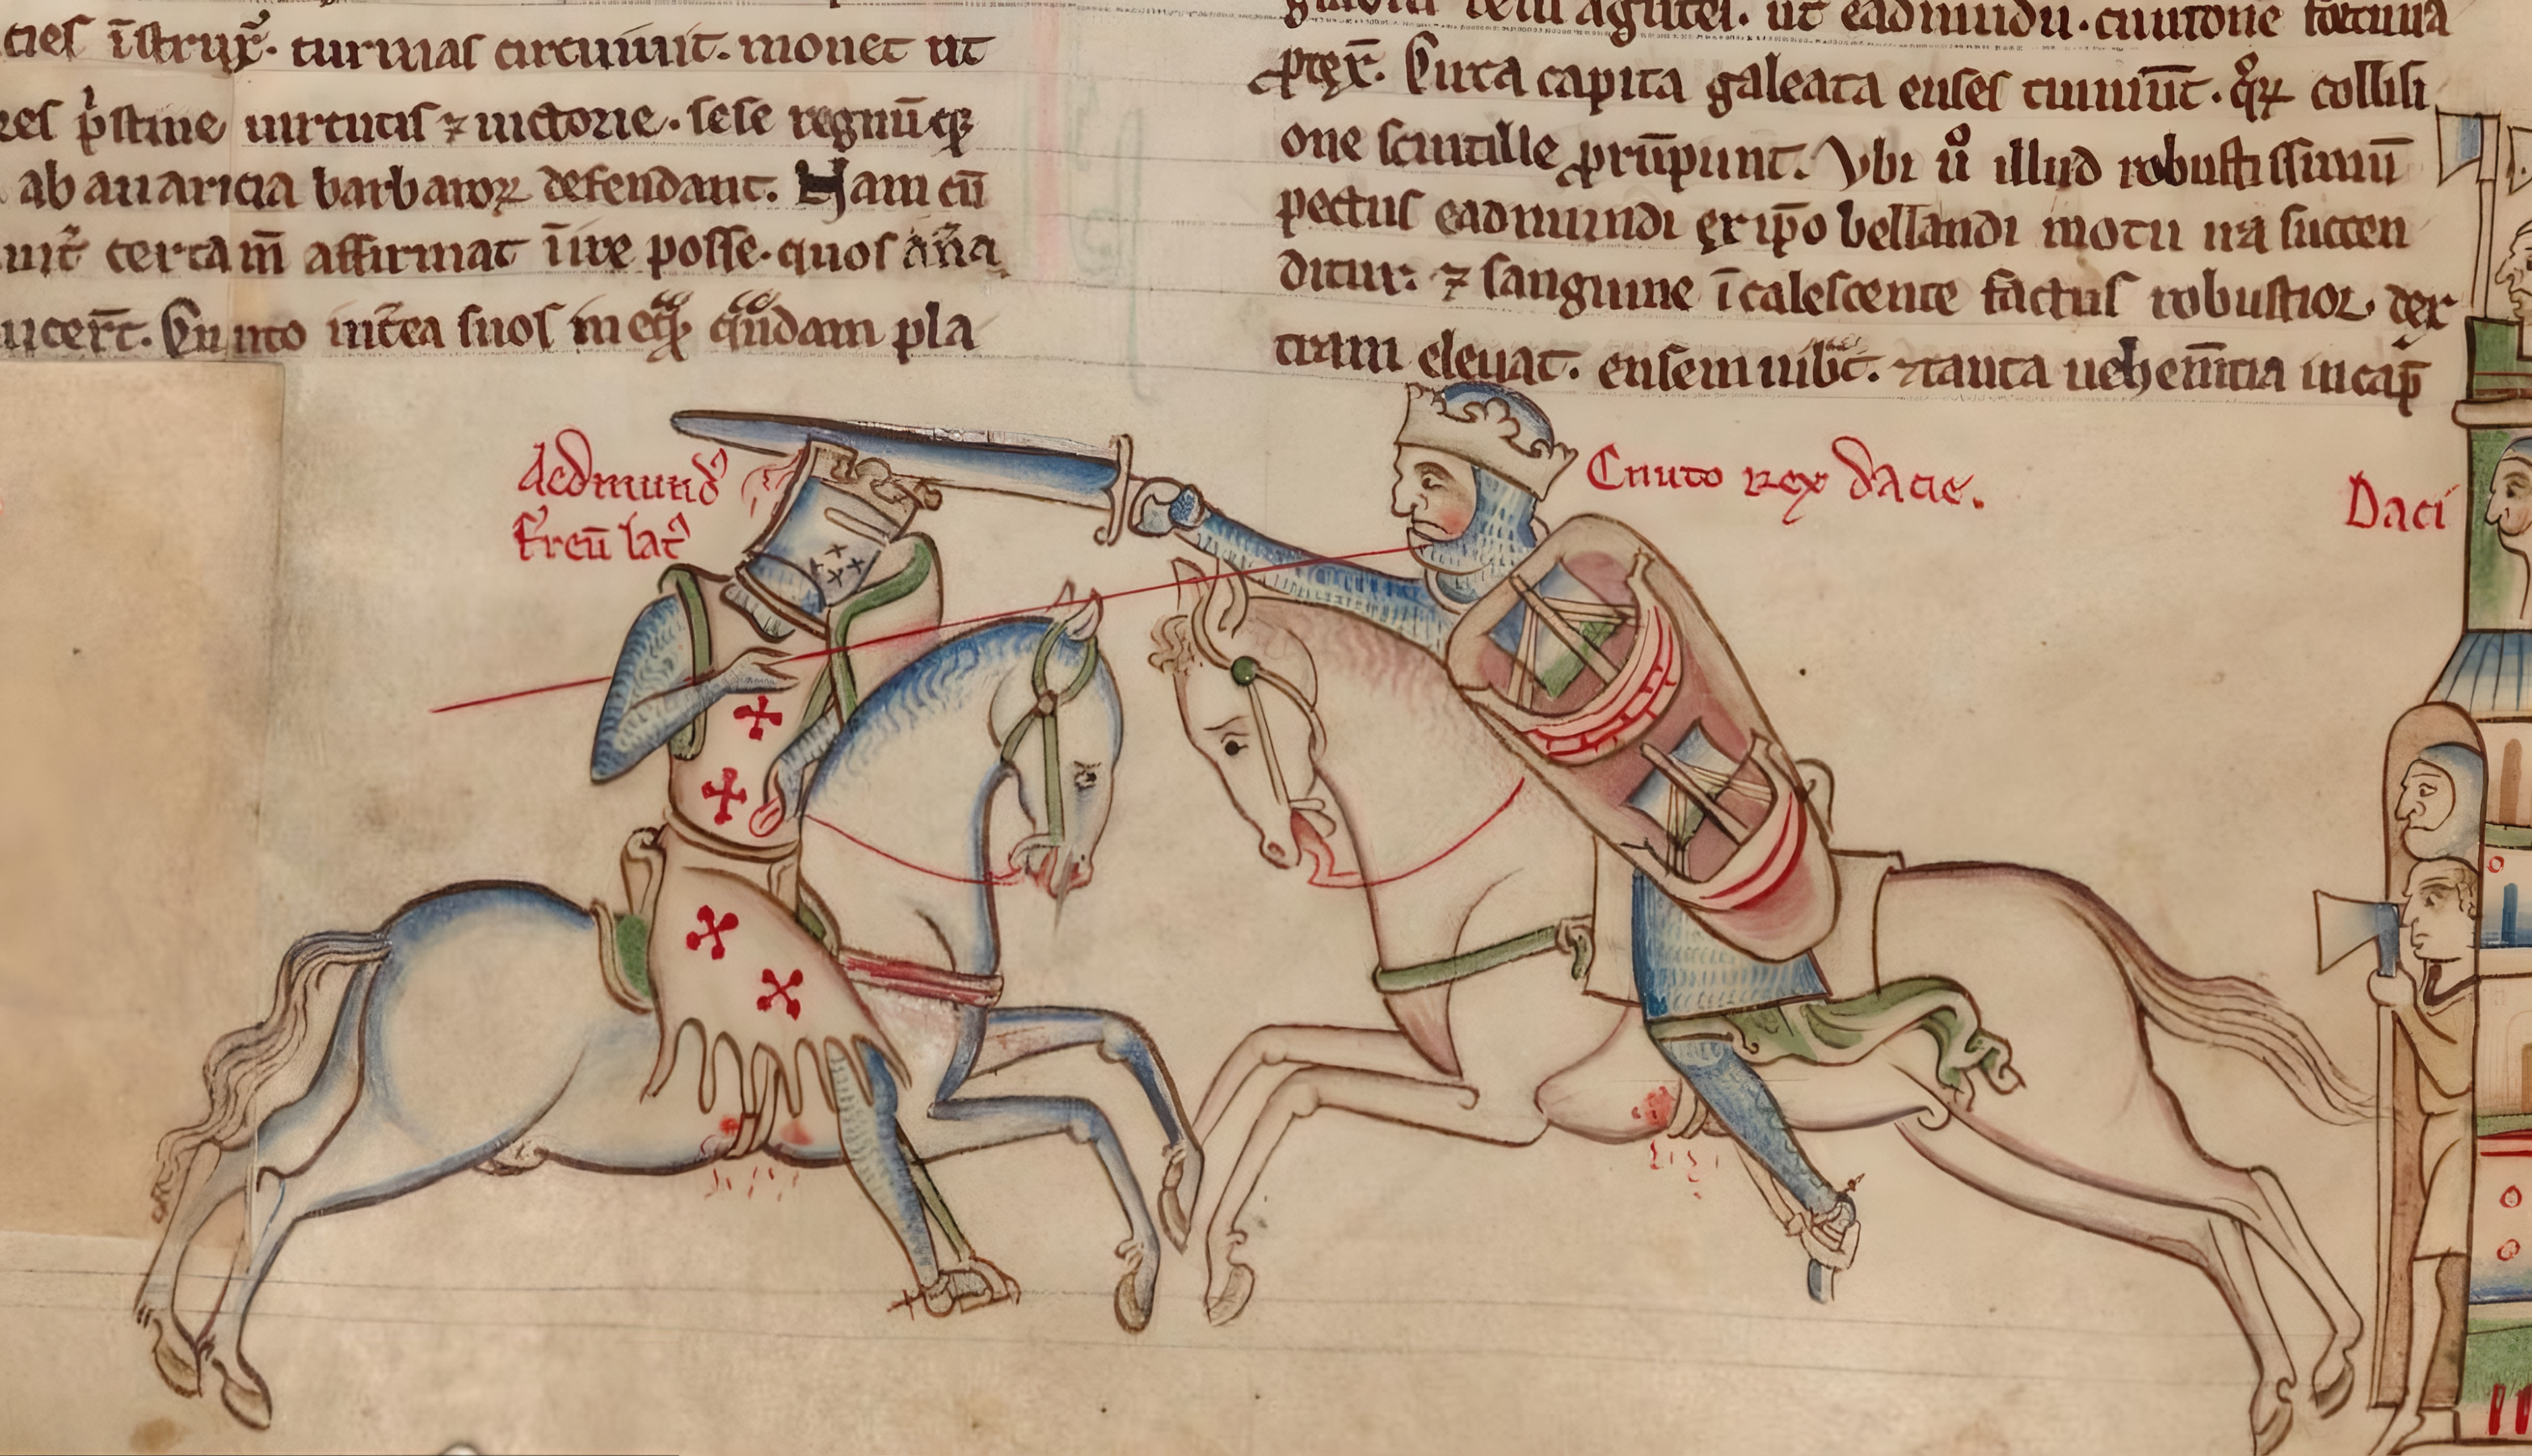 cies īstrux̄. turmas circuiuit. monet ut
res p̾stine uirtutis ⁊ uictorie. sese regnūq̨
ab auaricia barbaroꝝ defendant. Nam cū
certam̄ affirmat īire posse. quos an̄a
ucer̄t. Cnuto int̾ea suos in eq̨ quondam pla
agitet. ut eadmundu. cnutone fortuna
p̄tex̄. Circa capita galeata enses tinniūt. q̊ꝝ collisi
one scintille prūpunt. Vbi ů illud robustissimū
pectus eadmundi ex ip̄o bellandi motu ira succen
ditur: ⁊ sanguine īcalescente factus robustior. dex
tram eleuat. ensem uibr̄t. ⁊ tanta uehem̄tia in cap̄
Aedmund᾿
ferreū lat᾿
Cnuto rex dacie.
Daci